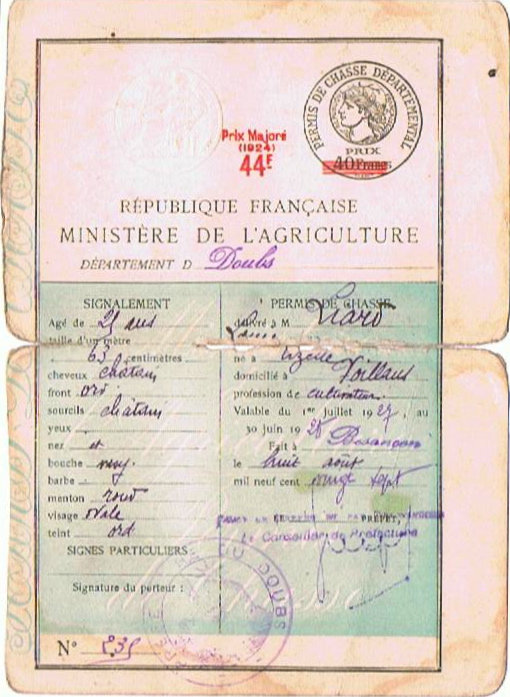 PERMIS DE CHASSE DÉPARTEMENTAL
PRIX
40 Francs
Prix Majoré
(1924)
44F
RÉPUBLIQUE FRANÇAISE
MINISTÈRE DE L'AGRICULTURE
DÉPARTEMENT D Doubs
SIGNALEMENT
Agé de 21 ans
taille d'un mètre
63 centimètres
cheveux châtain
front ord
sourcils châtain
yeux
nez et
bouche moy
barbe
menton rond
visage ovale
teint ord
SIGNES PARTICULIERS
Signature du porteur :
PERMIS DE CHASSE
délivré à M Liard
né à
domicilié à Voillans
profession de cultivateur
Valable du 1er juillet 1927, au
30 juin 1928
Fait à Besançon
le huit août
mil neuf cent vingt sept
PRÉFET,
Le Conseiller de Préfecture
DU DOUBS
N° 235